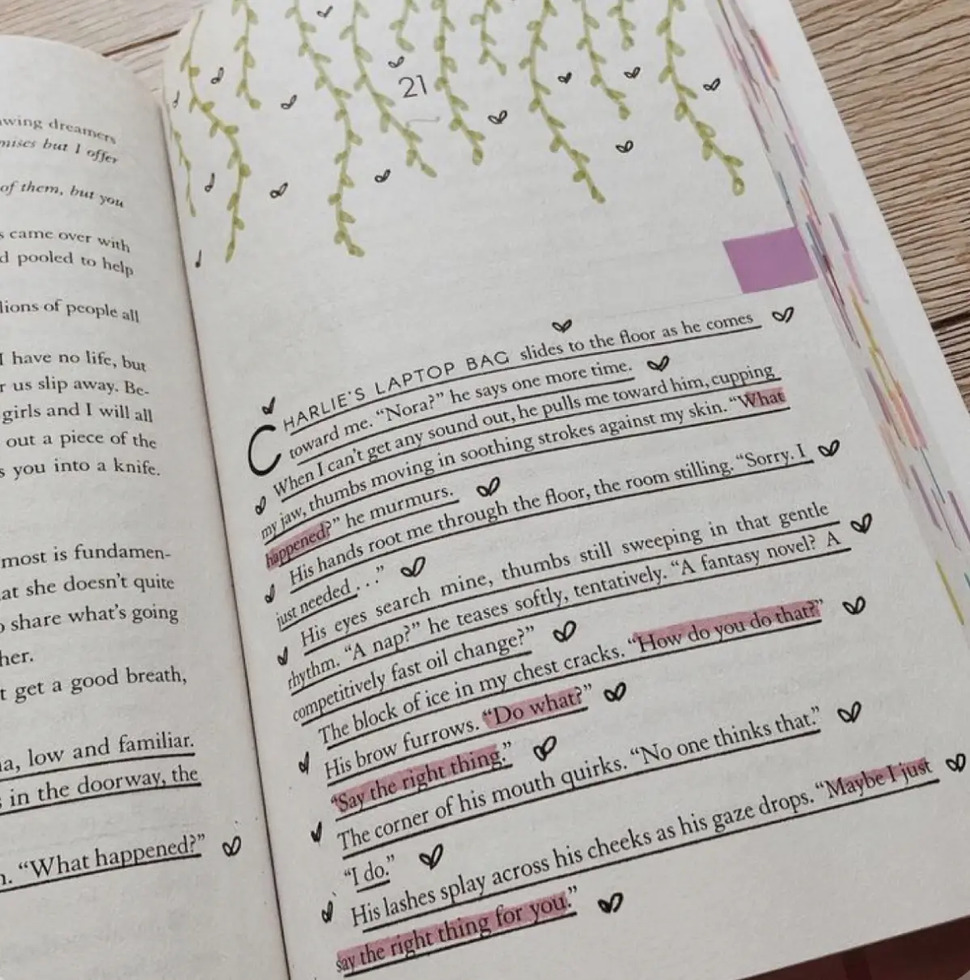 dreamers
but I offer
of them, but you
came over with
pooled to help
of people all
I have no life, but
us slip away. Be-
girls and I will all
out a piece of the
you into a knife.
most is fundamen-
she doesn't quite
share what's going
get a good breath,
low and familiar.
in the doorway, the
"What happened?"
21
CHARLIE'S LAPTOP BAG slides to the floor as he comes
toward me. "Nora?" he says one more time.
When I can't get any sound out, he pulls me toward him, cupping
my jaw, thumbs moving in soothing strokes against my skin. "What
happened?" he murmurs.
His hands root me through the floor, the room stilling. "Sorry. I
just needed . . ."
His eyes search mine, thumbs still sweeping in that gentle
rhythm. "A nap?" he teases softly, tentatively. "A fantasy novel? A
competitively fast oil change?"
The block of ice in my chest cracks. "How do you do that?"
His brow furrows. "Do what?"
"Say the right thing."
The corner of his mouth quirks. "No one thinks that."
"I do."
His lashes splay across his cheeks as his gaze drops. "Maybe I just
say the right thing for you."